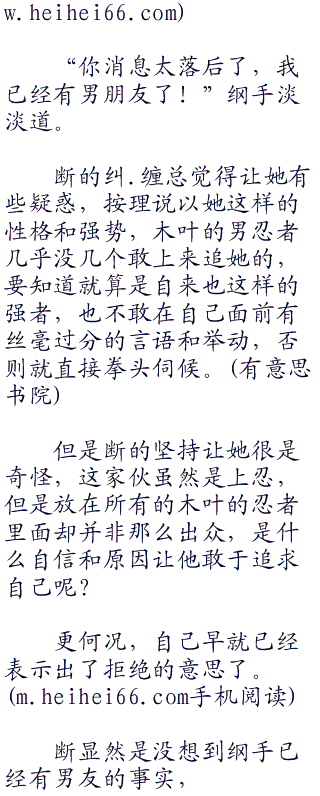 w.heihei66.com)
“你消息太落后了，我
已经有男朋友了！”纲手淡
淡道。
断的纠.缠总觉得让她有
些疑惑，按理说以她这样的
性格和强势，木叶的男忍者
几乎没几个敢上来追她的，
要知道就算是自来也这样的
强者，也不敢在自己面前有
丝毫过分的言语和举动，否
则就直接拳头伺候。(有意思
书院)
但是断的坚持让她很是
奇怪，这家伙虽然是上忍，
但是放在所有的木叶的忍者
里面却并非那么出众，是什
么自信和原因让他敢于追求
自己呢？
更何况，自己早就已经
表示出了拒绝的意思了。
(m.heihei66.com手机阅读)
断显然是没想到纲手已
经有男友的事实，